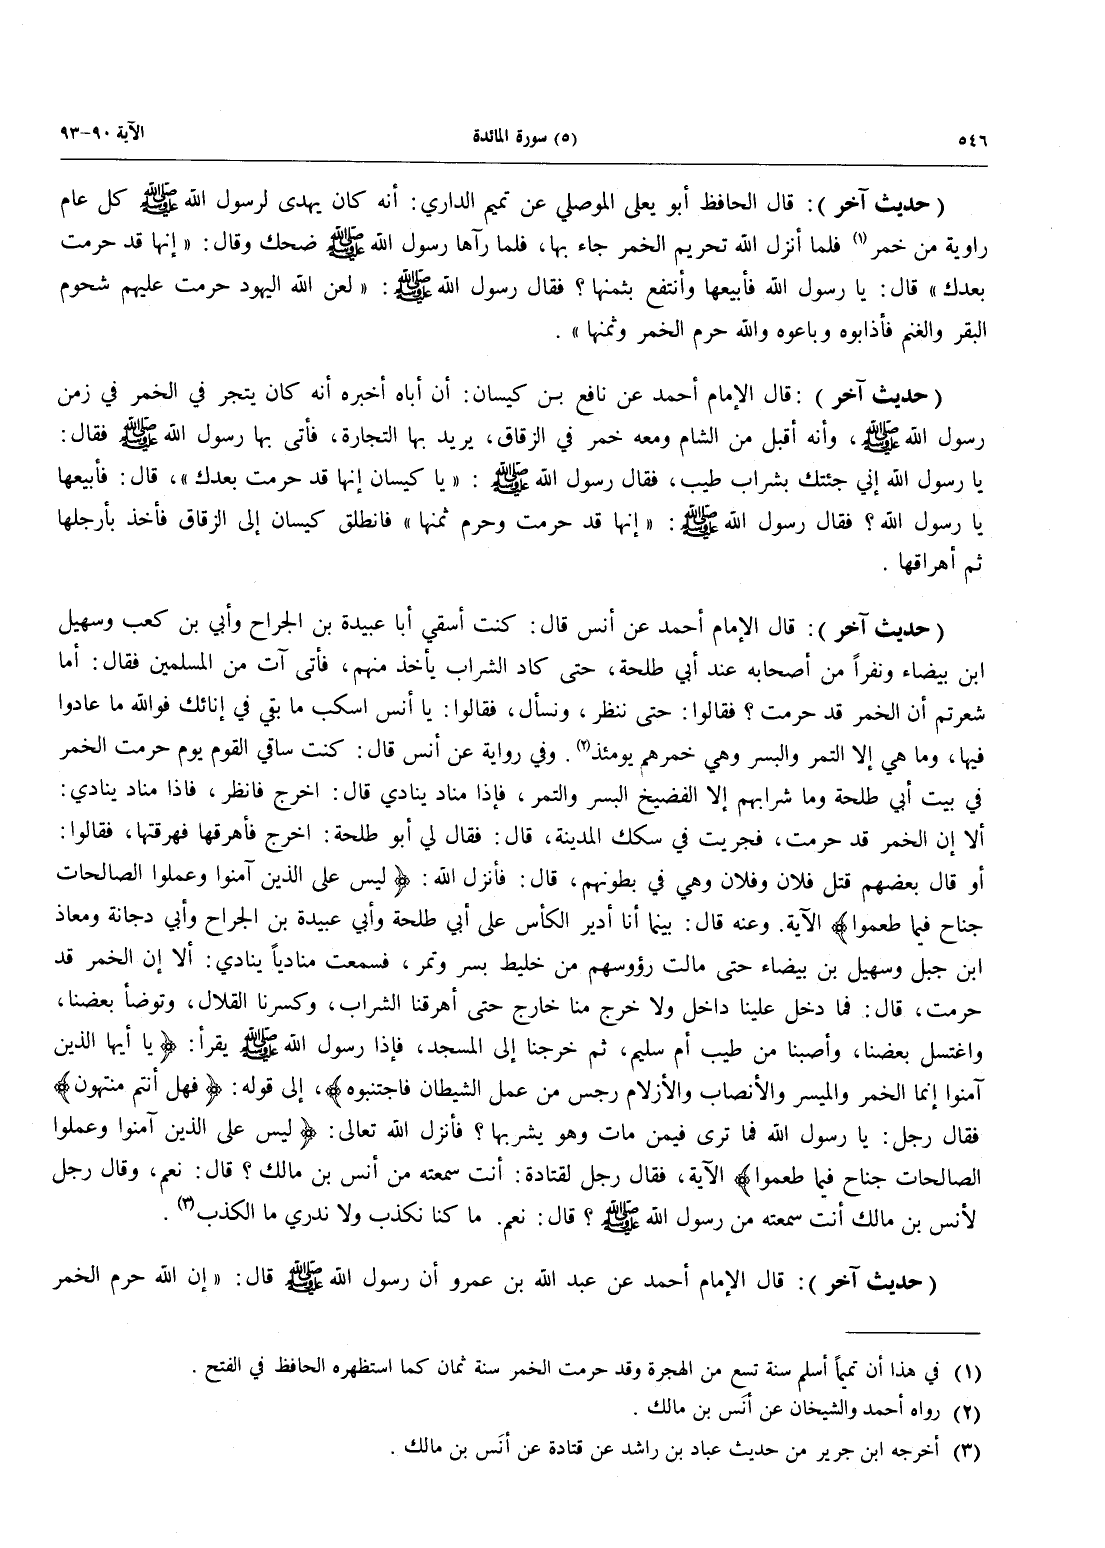 ٥٤٦ (٥) سورة المائدة الآية ٩٠-٩٣
( حديث آخر ): قال الحافظ أبو يعلى الموصلي عن تميم الداري: أنه كان يهدى لرسول الله ﷺ كل عام
راوية من خمر (١) فلما أنزل الله تحريم الخمر جاء بها، فلما رآها رسول الله ﷺ ضحك وقال: « إنها قد حرمت
بعدك » قال: يا رسول الله فأبيعها وأنتفع بثمنها؟ فقال رسول الله ﷺ: « لعن الله اليهود حرمت عليهم شحوم
البقر والغنم فأذابوه وباعوه والله حرم الخمر وثمنها » .
( حديث آخر ) :قال الإمام أحمد عن نافع بن كيسان: أن أباه أخبره أنه كان يتجر في الخمر في زمن
رسول الله ﷺ، وأنه أقبل من الشام ومعه خمر في الزقاق، يريد بها التجارة، فأتى بها رسول الله ﷺ فقال:
يا رسول الله إني جئتك بشراب طيب، فقال رسول الله ﷺ : « يا كيسان إنها قد حرمت بعدك »، قال: فأبيعها
يا رسول الله؟ فقال رسول الله ﷺ: « إنها قد حرمت وحرم ثمنها » فانطلق كيسان إلى الزقاق فأخذ بأرجلها
ثم أهراقها .
( حديث آخر ): قال الإمام أحمد عن أنس قال: كنت أسقي أبا عبيدة بن الجراح وأبي بن كعب وسهيل
ابن بيضاء ونفراً من أصحابه عند أبي طلحة، حتى كاد الشراب يأخذ منهم، فأتى آت من المسلمين فقال: أما
شعرتم أن الخمر قد حرمت؟ فقالوا: حتى ننظر، ونسأل، فقالوا: يا أنس اسكب ما بقي في إنائك فوالله ما عادوا
فيها، وما هي إلا التمر والبسر وهي خمرهم يومئذ(٢). وفي رواية عن أنس قال: كنت ساقي القوم يوم حرمت الخمر
في بيت أبي طلحة وما شرابهم إلا الفضيخ البسر والتمر، فإذا مناد ينادي قال: اخرج فانظر، فاذا مناد ينادي:
ألا إن الخمر قد حرمت، فجريت في سكك المدينة، قال: فقال لي أبو طلحة: اخرج فأهرقها فهرقتها، فقالوا:
أو قال بعضهم قتل فلان وفلان وهي في بطونهم، قال: فأنزل الله: ﴿ ليس على الذين آمنوا وعملوا الصالحات
جناح فيما طعموا﴾ الآية. وعنه قال: بينما أنا أدير الكأس على أبي طلحة وأبي عبيدة بن الجراح وأبي دجانة ومعاذ
ابن جبل وسهيل بن بيضاء حتى مالت رؤوسهم من خليط بسر وتمر، فسمعت منادياً ينادي: ألا إن الخمر قد
حرمت، قال: فما دخل علينا داخل ولا خرج منا خارج حتى أهرقنا الشراب، وكسرنا القلال، وتوضأ بعضنا،
واغتسل بعضنا، وأصبنا من طيب أم سليم، ثم خرجنا إلى المسجد، فإذا رسول الله ﷺ يقرأ: ﴿ يا أيها الذين
آمنوا إنما الخمر والميسر والأنصاب والأزلام رجس من عمل الشيطان فاجتنبوه﴾، إلى قوله: ﴿ فهل أنتم منتهون﴾
فقال رجل: يا رسول الله فما ترى فيمن مات وهو يشربها؟ فأنزل الله تعالى: ﴿ ليس على الذين آمنوا وعملوا
الصالحات جناح فيما طعموا﴾ الآية، فقال رجل لقتادة: أنت سمعته من أنس بن مالك؟ قال: نعم، وقال رجل
لأنس بن مالك أنت سمعته من رسول الله ﷺ؟ قال: نعم. ما كنا نكذب ولا ندري ما الكذب(٣) .
( حديث آخر ): قال الإمام أحمد عن عبد الله بن عمرو أن رسول الله ﷺ قال: « إن الله حرم الخمر
(١) في هذا أن تميماً أسلم سنة تسع من الهجرة وقد حرمت الخمر سنة ثمان كما استظهره الحافظ في الفتح .
(٢) رواه أحمد والشيخان عن أنَس بن مالك .
(٣) أخرجه ابن جرير من حديث عباد بن راشد عن قتادة عن أنَس بن مالك .